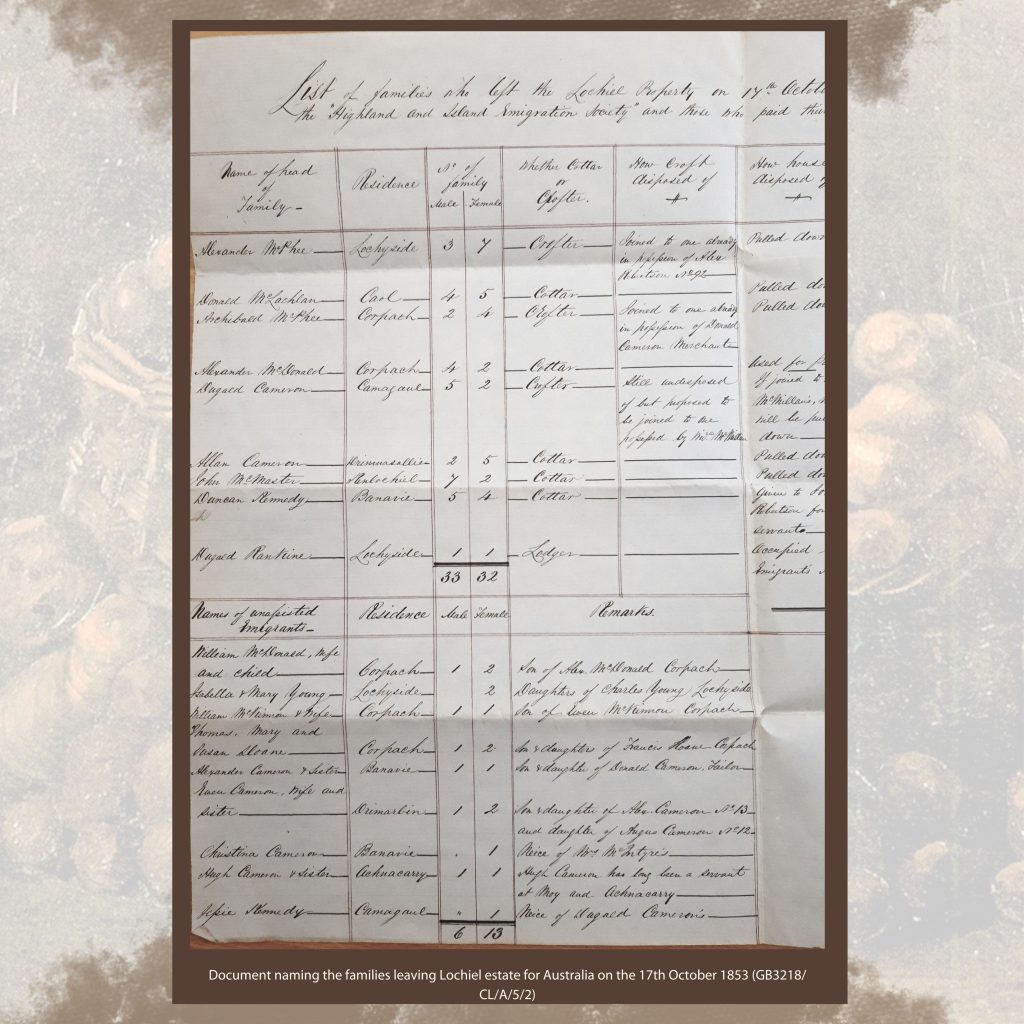 List of families who left the Lochiel Property on 17th Octo
the "Highland and Island Emigration Society" and those who paid thei
Name of head of Family Residence No of family Male Female Whether Cottar or Crofter. How Croft disposed of How house disposed of
Alexander McPhee Lochyside 3 7 Crofter Joined to one already Pulled down
in possession of Alexr
Robertson No 92
Donald McLachlan Caol 4 5 Cottar Pulled do
Archibald McPhee Corpach 2 4 Crofter Joined to one already Pulled do
in possession of Donald
Cameron Merchant
Alexander McDonald Corpach 4 2 Cottar Used for
Dugald Cameron Camaganl 5 2 Crofter Still undisposed If joined to
of but proposed to McMillans,
be joined to one will be pu
possessed by McMillan down
Allan Cameron Drimnasallie 2 5 Cottar Pulled do
John McMaster Kenlochiel 7 2 Cottar Pulled do
Duncan Kennedy Banavie 5 4 Cottar Given to
Robertson for
servants
Dugald Rankine Lochyside 1 1 Lodger Occupied
Emigrants
33 32
Names of unassisted Emigrants Residence Male Female Remarks.
William McDonald, wife
and child Corpach 1 2 Son of Alexr McDonald Corpach
Isabella & Mary Young Lochyside 2 Daughters of Charles Young Lochyside
William McKinnon & Wife Corpach 1 1 Son of Ewen McKinnon Corpach
Thomas, Mary and
Susan Sloane Corpach 1 2 Son & daughters of Francis Sloane Corpach
Alexander Cameron & Sister Banavie 1 1 Son & daughter of Donald Cameron, Tailor
Ewen Cameron, wife and
sister Drimarbin 1 2 Son & daughter of Alex. Cameron No 13
and daughter of Angus Cameron No 12
Christina Cameron Banavie . 1 Neice of Mrs McIntyre's
Hugh Cameron & Sister Achnacarry 1 1 Hugh Cameron has long been a servant
at Moy and Achnacarry
Jessie Kennedy Camaganl " 1 Neice of Dugald Cameron's
6 13
Document naming the families leaving Lochiel estate for Australia on the 17th October 1853 (GB3218/
CL/A/5/2)